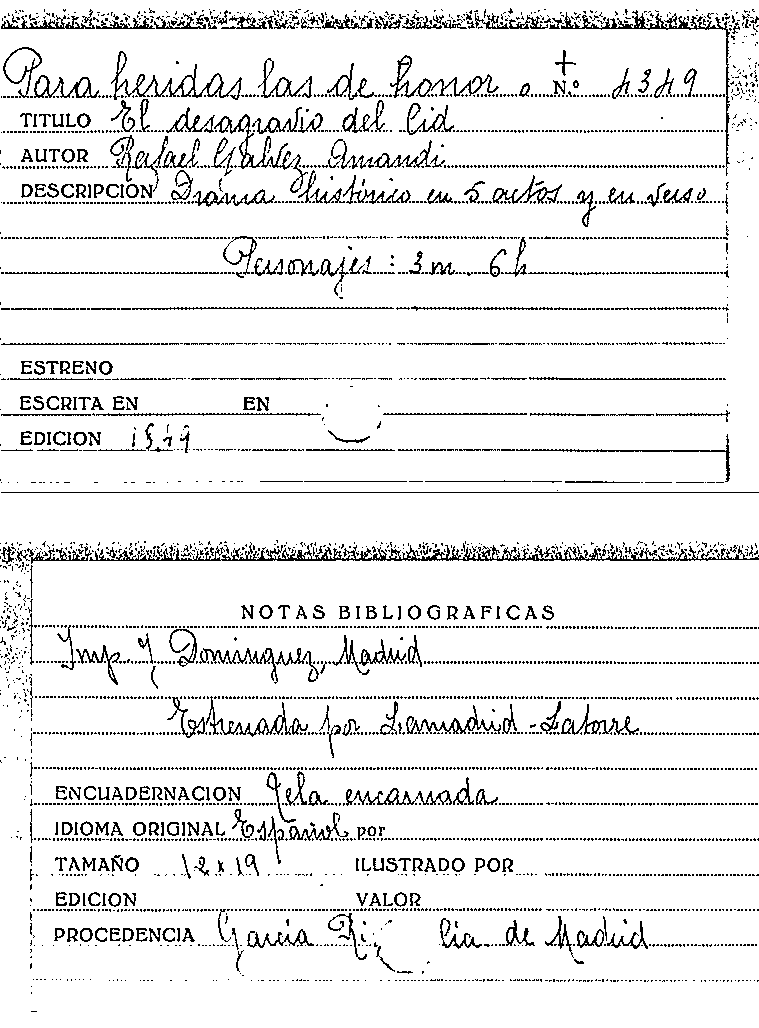 Para heridas las de honor o + N.º 4349
TITULO El desagravio del Cid
AUTOR Rafael Gálvez Amandi
DESCRIPCION Drama histórico en 5 actos y en verso
Personajes: 3 m. 6 h
ESTRENO
ESCRITA EN EN
EDICION
NOTAS BIBLIOGRAFICAS
Imp. J. Dominguez, Madrid
Estrenada por Lamadrid - Latorre
ENCUADERNACION Tela encarnada
IDIOMA ORIGINAL Español por
TAMAÑO 12 x 19 ILUSTRADO POR
EDICION VALOR
PROCEDENCIA Garcia Cia. de Madrid